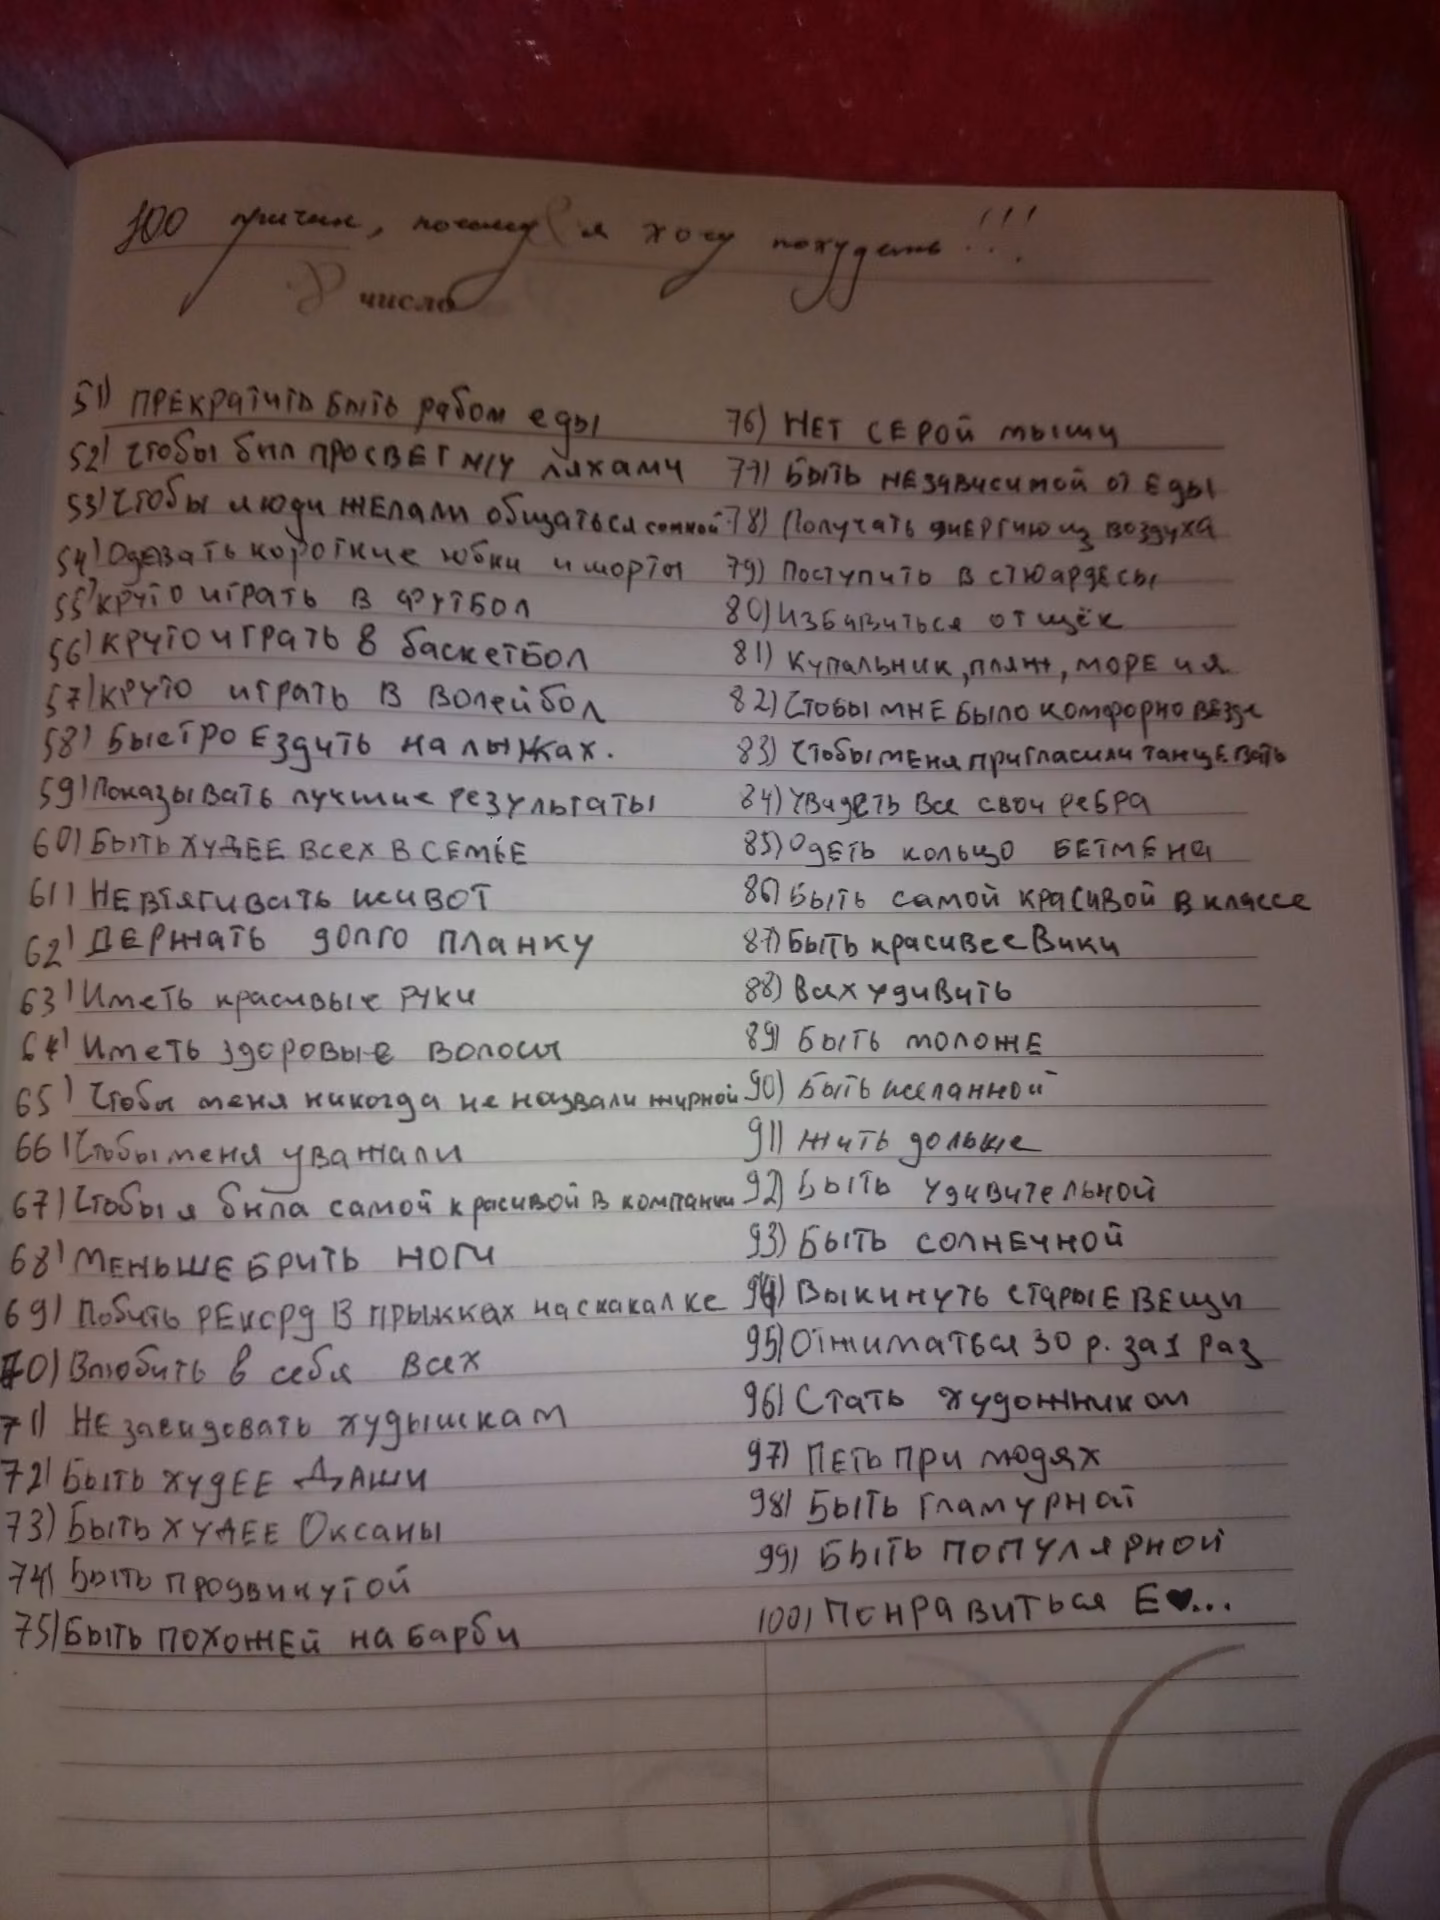 100 причин, почему я хочу похудеть!!!
число
51) ПРЕКРАТИТЬ БЫТЬ рабом еды
52) Чтобы был ПРОСВЕТ М/У ЛЯХАМИ
53) Чтобы люди ЖЕЛАЛИ общаться со мной
54) Одевать короткие юбки и шорты
55) КРУТО играть в ФУТБОЛ
56) КРУТО играть в баскетбол
57) КРУТО играть в волейбол
58) Быстро ездить на лыжах.
59) Показывать лучшие результаты
60) БЫТЬ ХУДЕЕ ВСЕХ В СЕМЬЕ
61) НЕ ВТЯГИВАТЬ ЖИВОТ
62) ДЕРЖАТЬ долго ПЛАНКУ
63) Иметь красивые руки
64) Иметь здоровые волосы
65) Чтобы меня никогда не назвали жирной
66) Чтобы меня уважали
67) Чтобы я была самой красивой в компании
68) МЕНЬШЕ БРИТЬ НОГИ
69) Побить РЕКОРД В прыжках на скакалке
70) Влюбить в себя всех
71) НЕ завидовать худышкам
72) БЫТЬ ХУДЕЕ ДАШИ
73) БЫТЬ ХУДЕЕ Оксаны
74) Быть продвинутой
75) БЫТЬ ПОХОЖЕЙ на барби
76) НЕТ СЕРОЙ мыши
77) БЫТЬ НЕЗАВИСИМОЙ от ЕДЫ
78) Получать энергию из воздуха
79) Поступить в стюардесы
80) Избавиться от щёк
81) Купальник, пляж, море и я
82) Чтобы мне было комфорно везде
83) Чтобы меня пригласили танцевать
84) Увидеть все свои ребра
85) Одеть кольцо БЕТМЕНА
86) Быть самой красивой в классе
87) Быть красивее Вики
88) Всех удивить
89) БЫТЬ МОЛОЖЕ
90) Быть желанной
91) Жить дольше
92) БЫТЬ удивительной
93) БЫТЬ СОЛНЕЧНОЙ
94) Выкинуть старые вещи
95) Отжиматься 30 р. за 1 раз
96) Стать художником
97) ПЕТЬ ПРИ людях
98) БЫТЬ ГЛАМУРНОЙ
99) БЫТЬ ПОПУЛЯРНОЙ
100) ПОНРАВИТЬСЯ Е♥...